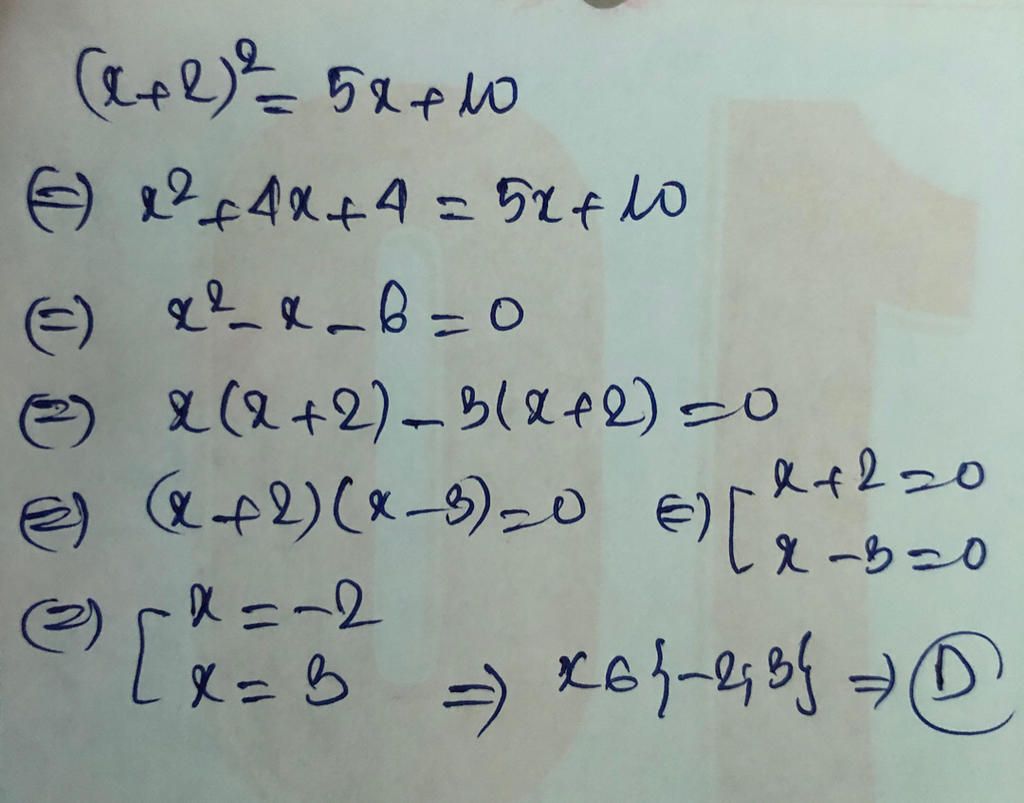 (x+2)² = 5x+10
⇔ x²+4x+4 = 5x+10
⇔ x²-x-6=0
⇔ x(x+2)-3(x+2)=0
⇔ (x+2)(x-3)=0 ⇔ [ x+2=0
x-3=0
⇔ [ x=-2
x=3 ⇒ x∈{-2;3} ⇒ D
10